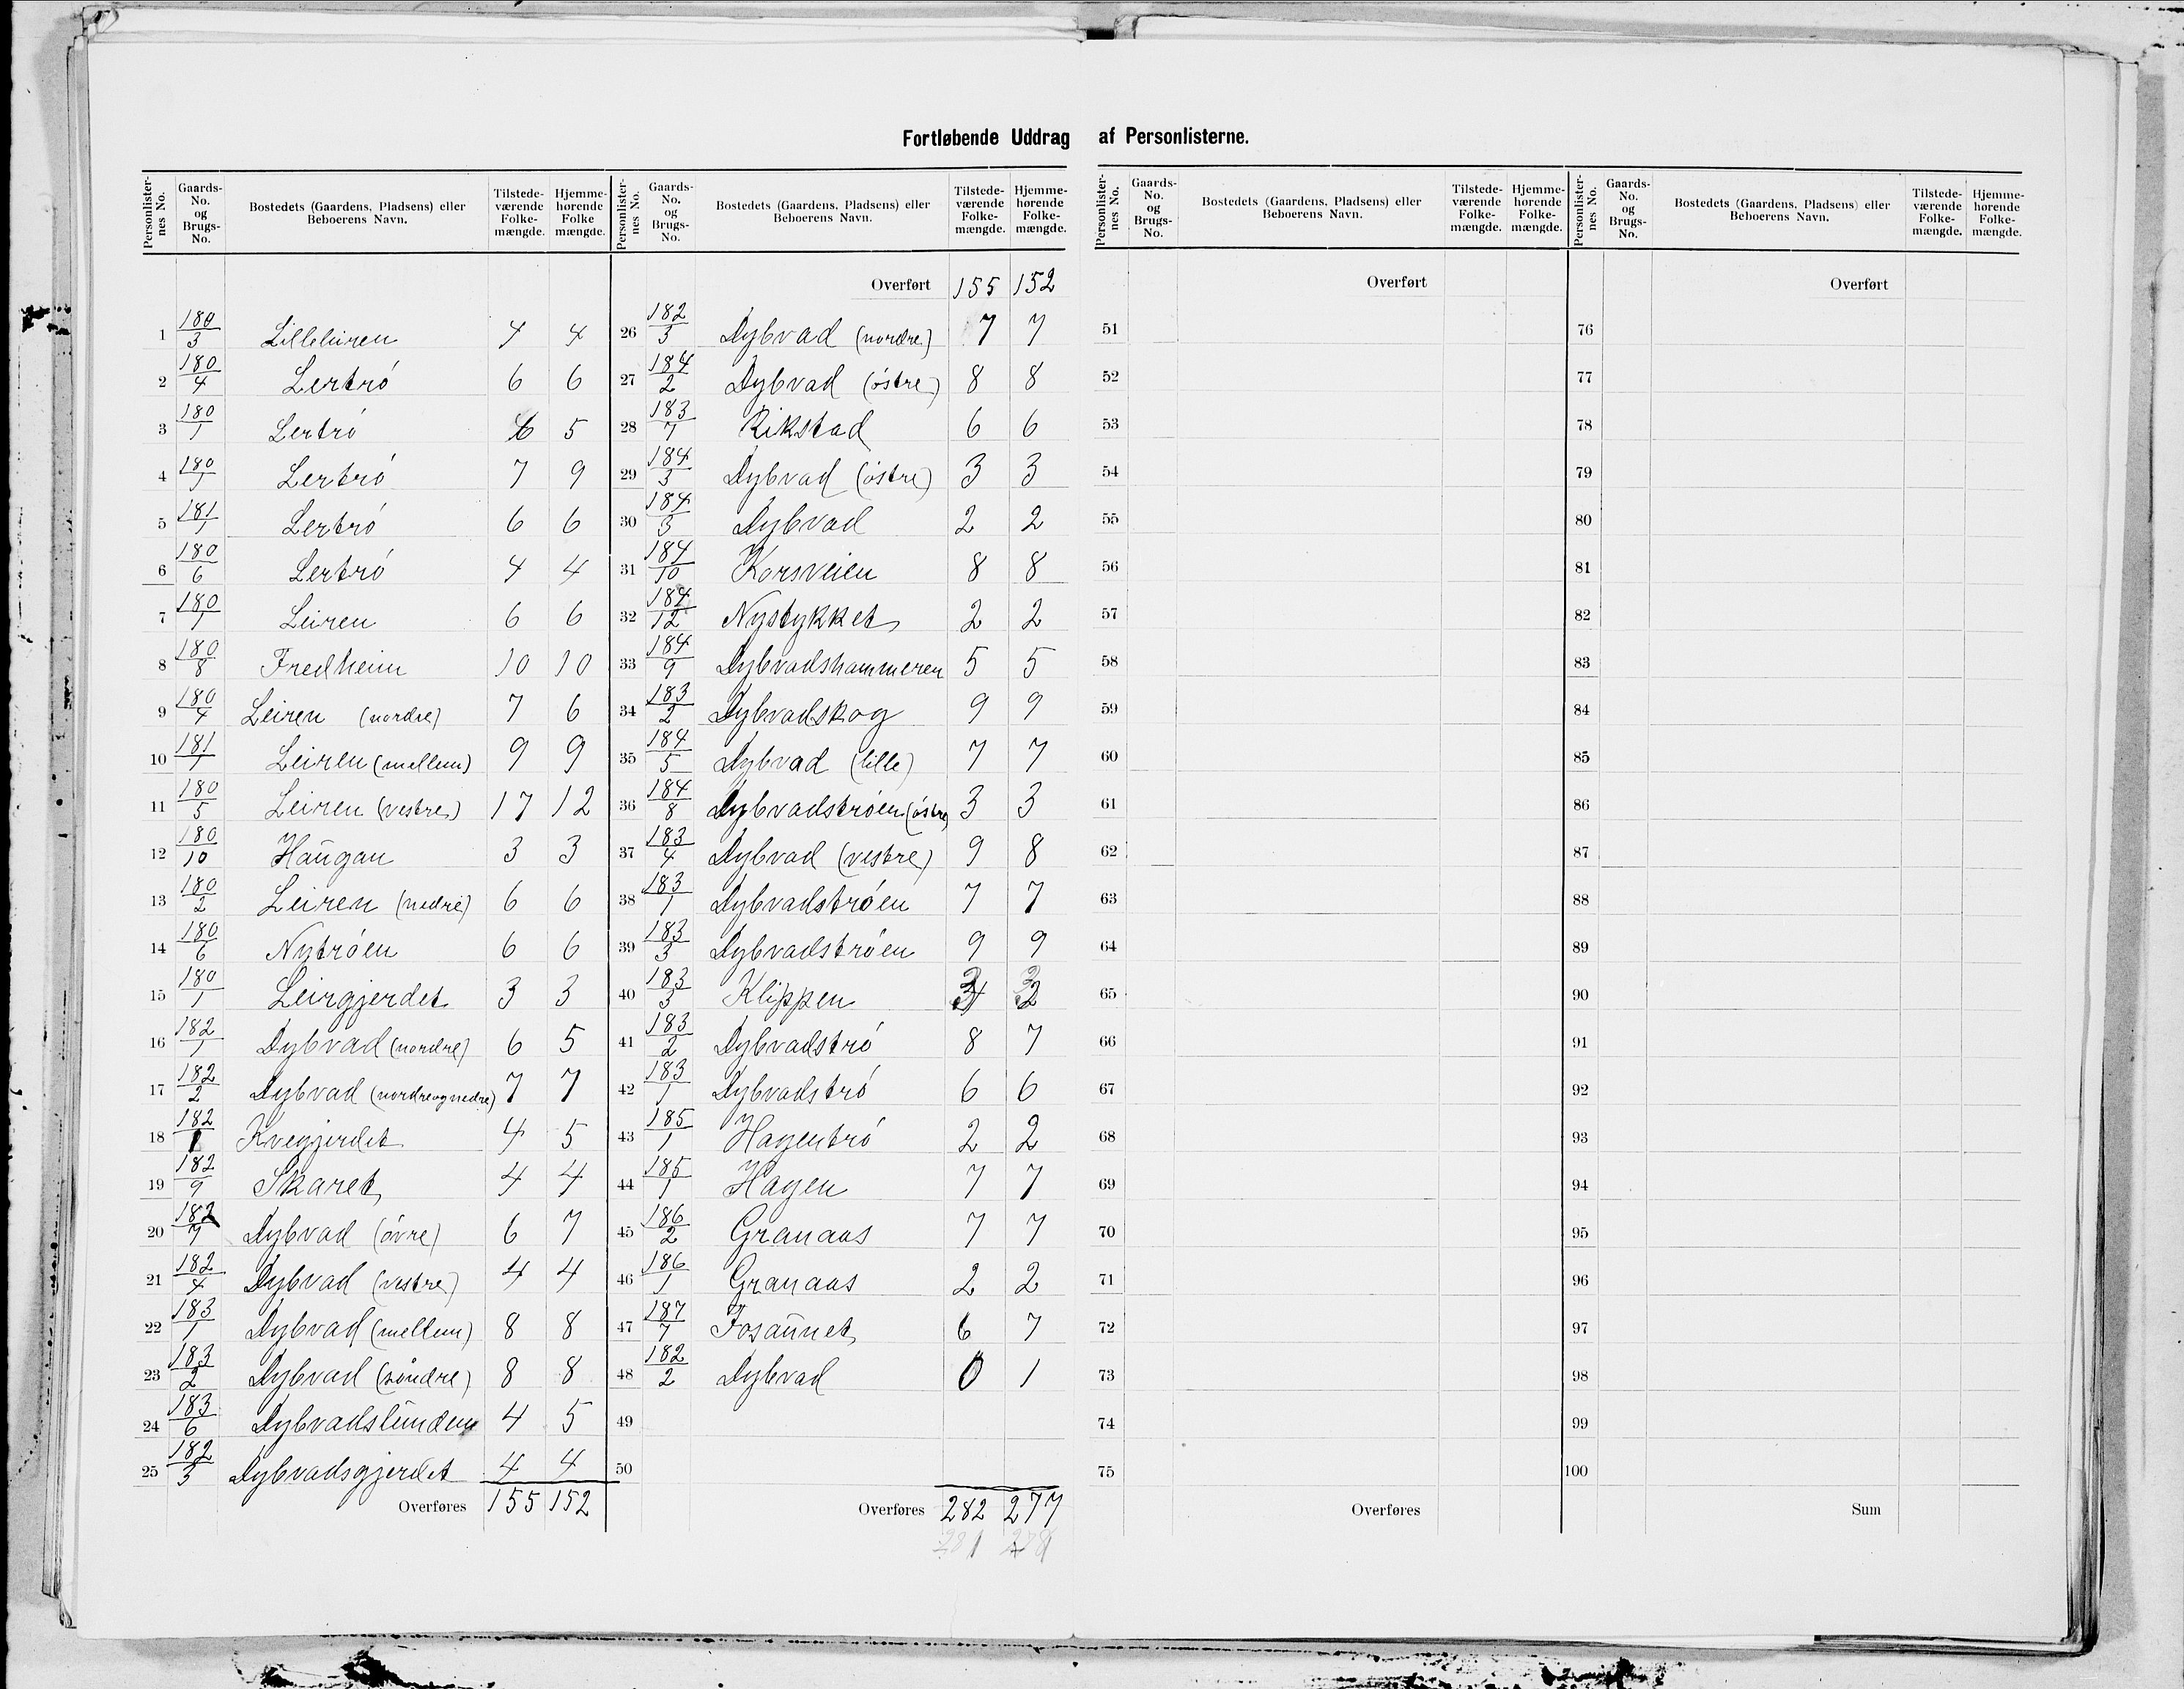 Fortløbende Uddrag af Personlisterne.
Personlisternes No. Gaards-No. og Brugs-No. Bostedets (Gaardens, Pladsens) eller Beboerens Navn. Tilstedeværende Folkemængde. Hjemmehørende Folkemængde.
1 180/3 Lilleleiren 4 4
2 180/4 Lertrö 6 6
3 180/1 Lertrö 6 5
4 180/1 Lertrö 7 9
5 181/1 Lertrö 6 6
6 180/6 Lertrö 4 4
7 180/1 Leiren 6 6
8 180/8 Fredheim 10 10
9 180/4 Leiren (nordre) 7 6
10 181/1 Leiren (mellem) 9 9
11 180/5 Leiren (vestre) 17 12
12 180/10 Haugan 3 3
13 180/2 Leiren (nedre) 6 6
14 180/6 Nytröen 6 6
15 180/1 Leirgjerdet 3 3
16 182/1 Dybvad (nordre) 6 5
17 182/2 Dybvad (nordre og nedre) 7 7
18 182/1 Kvegjerdet 4 5
19 182/9 Skaret 4 4
20 182/7 Dybvad (övre) 6 7
21 182/4 Dybvad (vestre) 4 4
22 183/1 Dybvad (mellem) 8 8
23 183/2 Dybvad (söndre) 8 8
24 183/6 Dybvadslunden 4 5
25 182/3 Dybvadsgjerdet 4 4
Overføres 155 152
Personlisternes No. Gaards-No. og Brugs-No. Bostedets (Gaardens, Pladsens) eller Beboerens Navn. Tilstedeværende Folkemængde. Hjemmehørende Folkemængde.
Overført 155 152
26 182/3 Dybvad (nordre) 7 7
27 184/2 Dybvad (östre) 8 8
28 183/7 Rikstad 6 6
29 184/3 Dybvad (östre) 3 3
30 184/3 Dybvad 2 2
31 184/10 Korsveien 8 8
32 184/12 Nystykket 2 2
33 184/9 Dybvadshammeren 5 5
34 183/2 Dybvadskog 9 9
35 184/5 Dybvad (lille) 7 7
36 184/8 Dybvadströen (östre) 3 3
37 183/4 Dybvad (vestre) 9 8
38 183/1 Dybvadströen 7 7
39 183/3 Dybvadströen 9 9
40 183/3 Klippen
41 183/2 Dybvadströ 8 7
42 183/1 Dybvadströ 6 6
43 185/1 Hagentrö 2 2
44 185/1 Hagen 7 7
45 186/2 Granaas 7 7
46 186/1 Granaas 2 2
47 187/7 Fosaunet 6 7
48 182/2 Dybvad 0 1
49
50
Overføres 282 277
281 278
Personlisternes No. Gaards-No. og Brugs-No. Bostedets (Gaardens, Pladsens) eller Beboerens Navn. Tilstedeværende Folkemængde. Hjemmehørende Folkemængde.
Overført
51
52
53
54
55
56
57
58
59
60
61
62
63
64
65
66
67
68
69
70
71
72
73
74
75
Overføres
Personlisternes No. Gaards-No. og Brugs-No. Bostedets (Gaardens, Pladsens) eller Beboerens Navn. Tilstedeværende Folkemængde. Hjemmehørende Folkemængde.
Overført
76
77
78
79
80
81
82
83
84
85
86
87
88
89
90
91
92
93
94
95
96
97
98
99
100
Sum